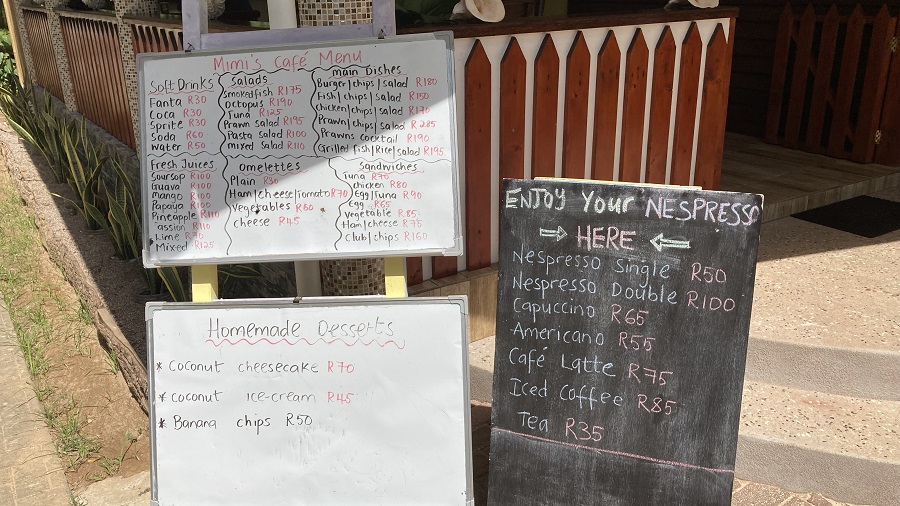 Mimi's Café Menu
Soft Drinks
Fanta R30
Coca R30
Sprite R30
Soda R60
Water R50
Fresh Juices
Soursop R100
Guava R100
Mango R100
Papaya R100
Pineapple R110
assion R110
Lime
Mixed R125
Salads
Smokedfish R175
Octopus R190
Tuna R125
Prawn Salad R195
Pasta Salad R100
mixed Salad R110
Omelettes
Plain R30
Ham/cheese/Tomato R70
Vegetables R60
cheese R45
main Dishes
Burger/chips/salad R180
Fish/chips/salad R150
Chicken/chips/salad R170
Prawn/chips/salad R285
Prawns cocktail R190
Grilled fish/Rice/salad R195
Sandwiches
Tuna R70
chicken R80
Egg/Tuna R90
Egg R65
Vegetable R85
Ham/cheese R75
Club/chips R160
Homemade Desserts
* Coconut cheesecake R70
* coconut ice-cream R45
* Banana chips R50
ENJOY Your NESPRESSO
⇒ HERE ⇐
Nespresso Single R50
Nespresso Double R100
Capuccino R65
Americano R55
Café Latte R75
Iced Coffee R85
Tea R35